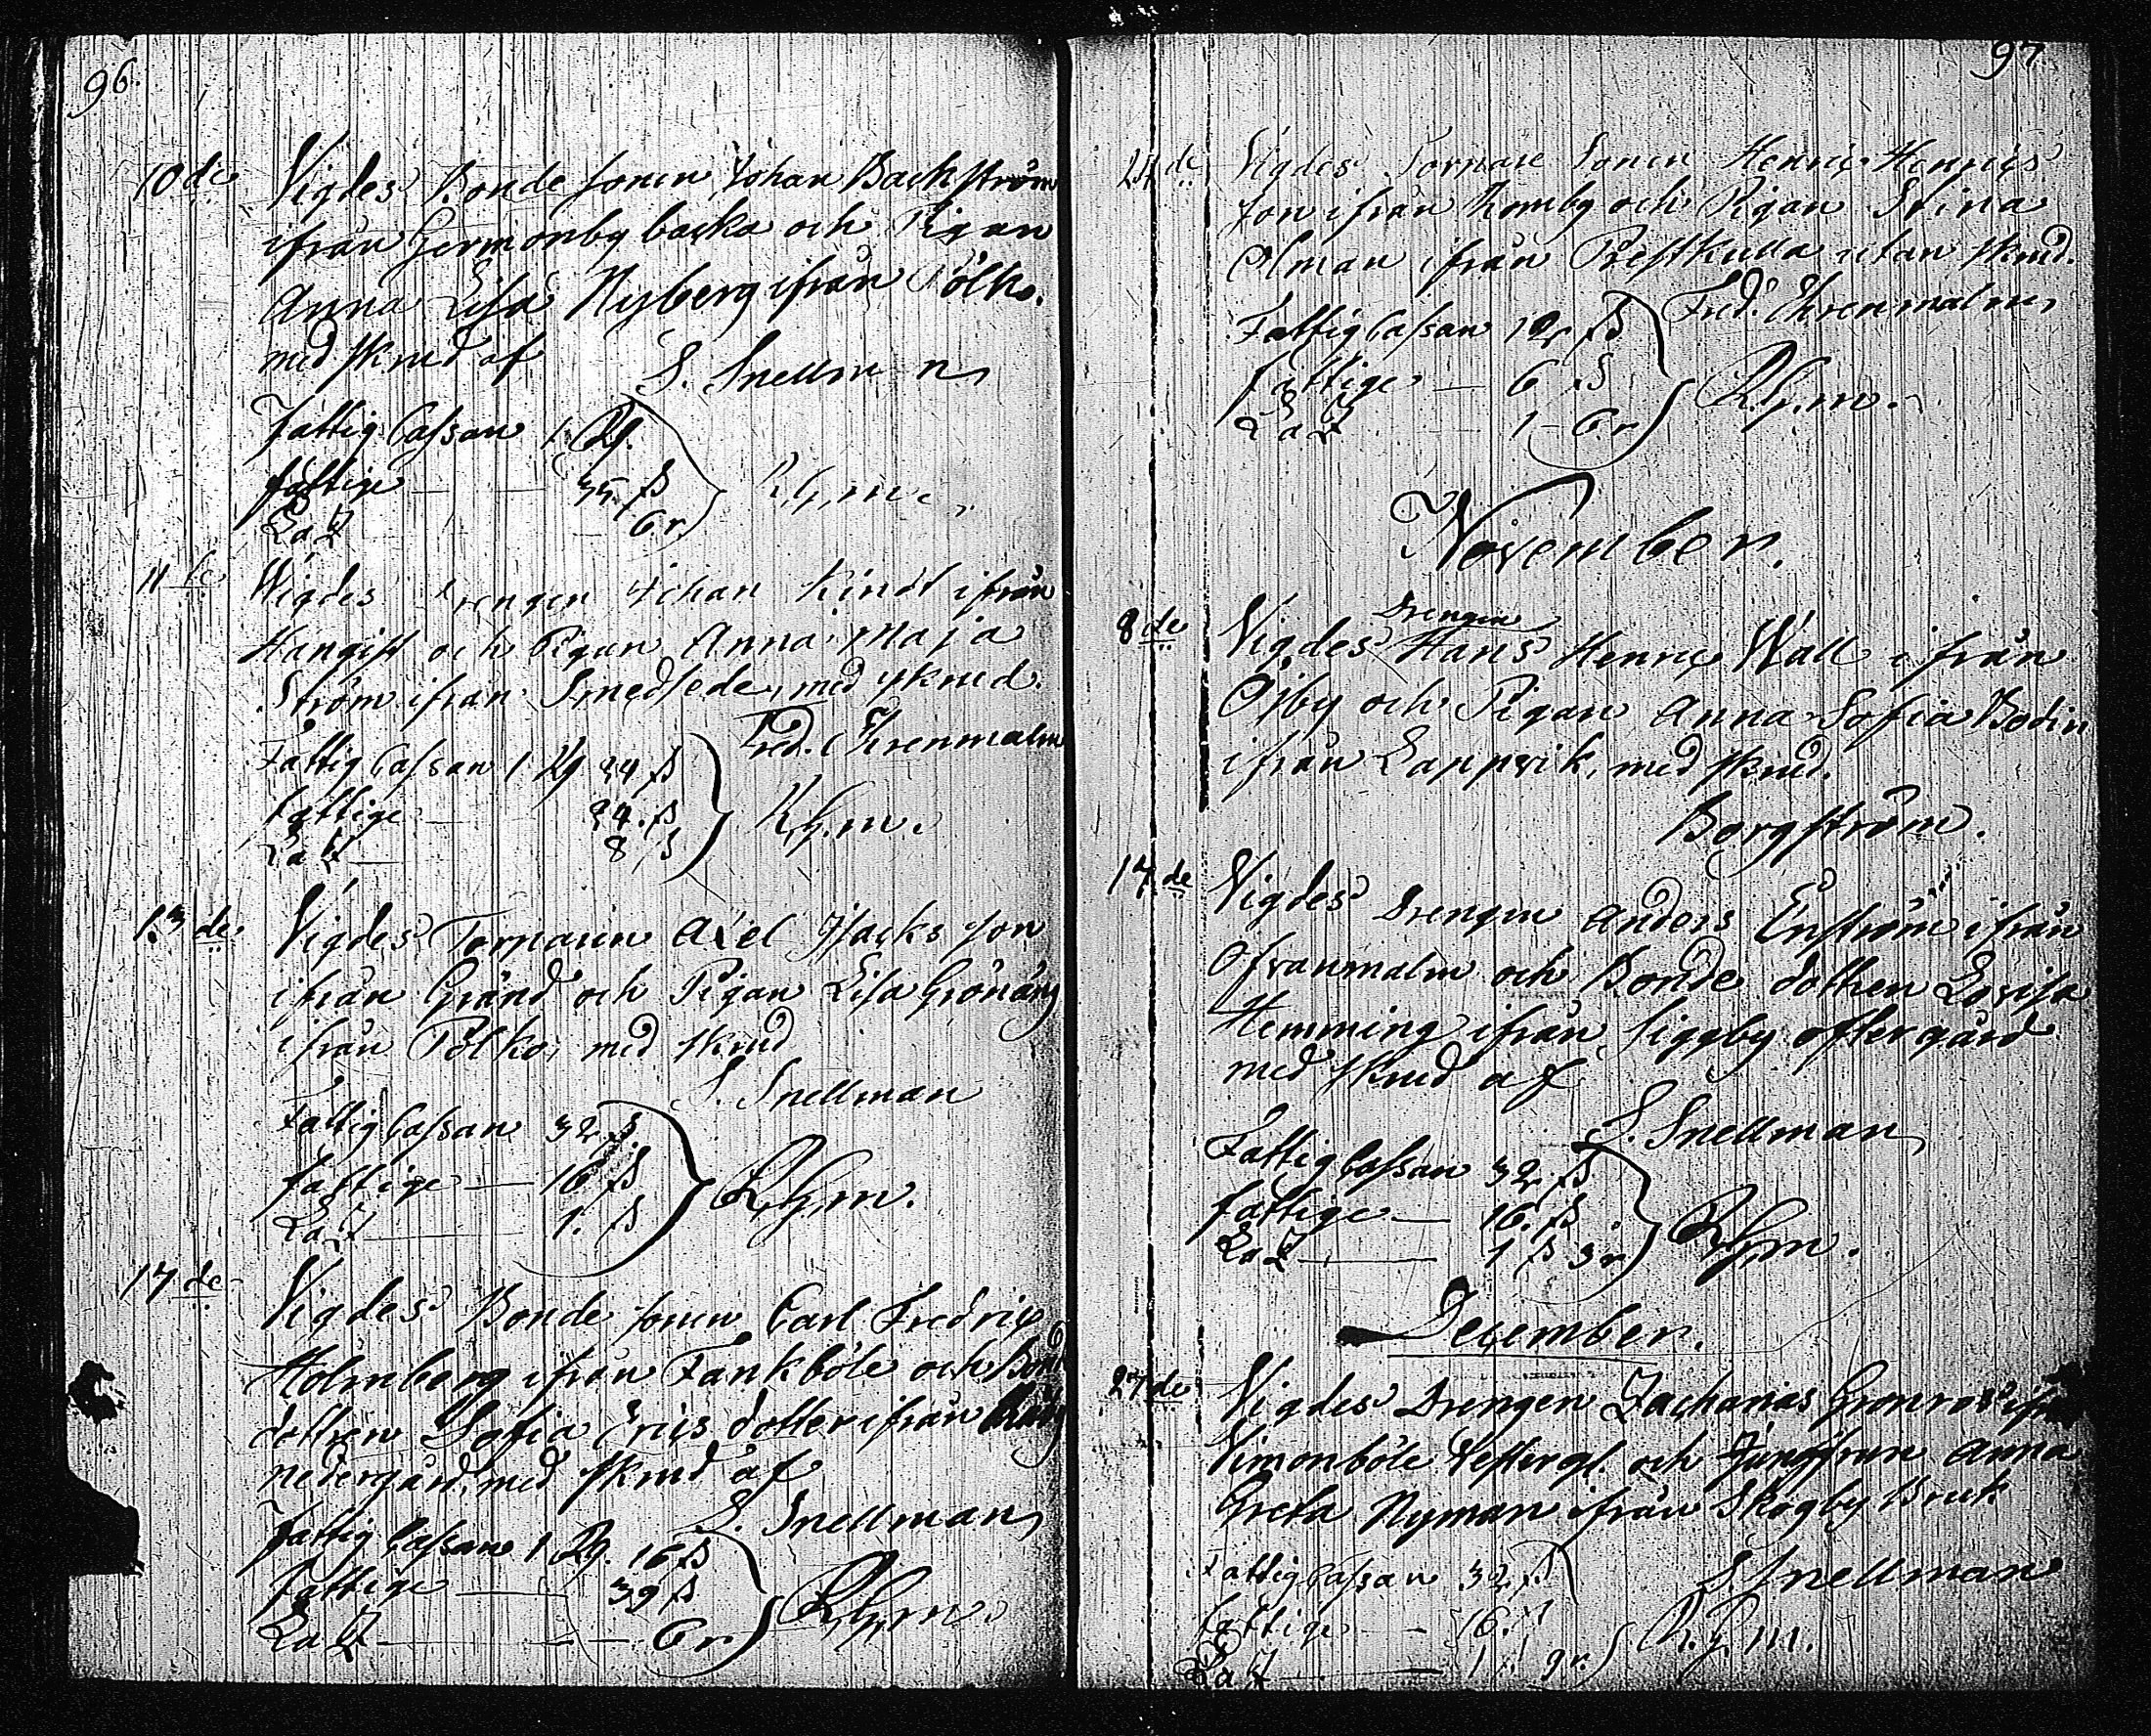 96.
10de Vigdes Bonde sonen Johan Backström
ifrån Germonby backa och Pigan
Anna Lisa Nyberg ifrån Pölko.
med skrud af
S. Snellman
Fattig Cassan 1 Rg.
fattige 35 ß
6 r.
R. G. m.
11te Vigdes Drengen Johan Kindt ifrån
Hangist och Pigan Anna Maja
Ström ifrån Smedsede, med skrud.
Fred. Ehrenmalm
Fattig Cassan 1 Rg 24 ß
fattige 24. ß
8 ß
R. G. m.
13de Vigdes Torparen Axel Isacks son
ifrån Gränd och Pigan Lisa Grönäng
ifrån Pölko, med skrud
S. Snellman
Fattig Cassan 32 ß
fattige 16 ß
1. ß
R. G. m.
17de Vigdes Bonde sonen Carl Fredric
Holmberg ifrån Fankböle och Bond
dottren Sofia Erics dotter ifrån
nedergård, med skrud af
S. Snellman
Fattig Cassan 1 Rg. 16 ß
fattige 39 ß
6 r.
R. G. m.
97
24de Vigdes Torpare Sonen Henric Henrics
son ifrån Tromby och Pigan Stina
Olman ifrån Prestkulla utan skrud.
Fred. Ehrenmalm
Fattig Cassan 12 ß
fattige 6 ß
1 6 r
R. G. m.
November.
Drengen
8de Vigdes Hans Henric Wall ifrån
Öjby och Pigan Anna Sofia Bodin
ifrån Lappvik, med skrud.
Borgström.
17de Vigdes Drengen Anders Enström ifrån
Ofvanmalm och Bonde dottren Lovisa
Hemming ifrån Siggby östergård
med skrud af
S. Snellman
Fattig Cassan 32 ß
fattige 16. ß
1 ß 3 r
R. G. m.
December.
27de Vigdes Drengen Zacharias Grönros ifrån
Simonböle Vestergd. och Jungfrun Anna
Greta Nyman ifrån Skogby Bruk
S. Snellman
Fattig Cassan 32 ß
fattige 16. ß
1 ß 9 r.
R. G. m.